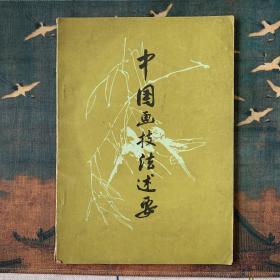 中国画技法述要